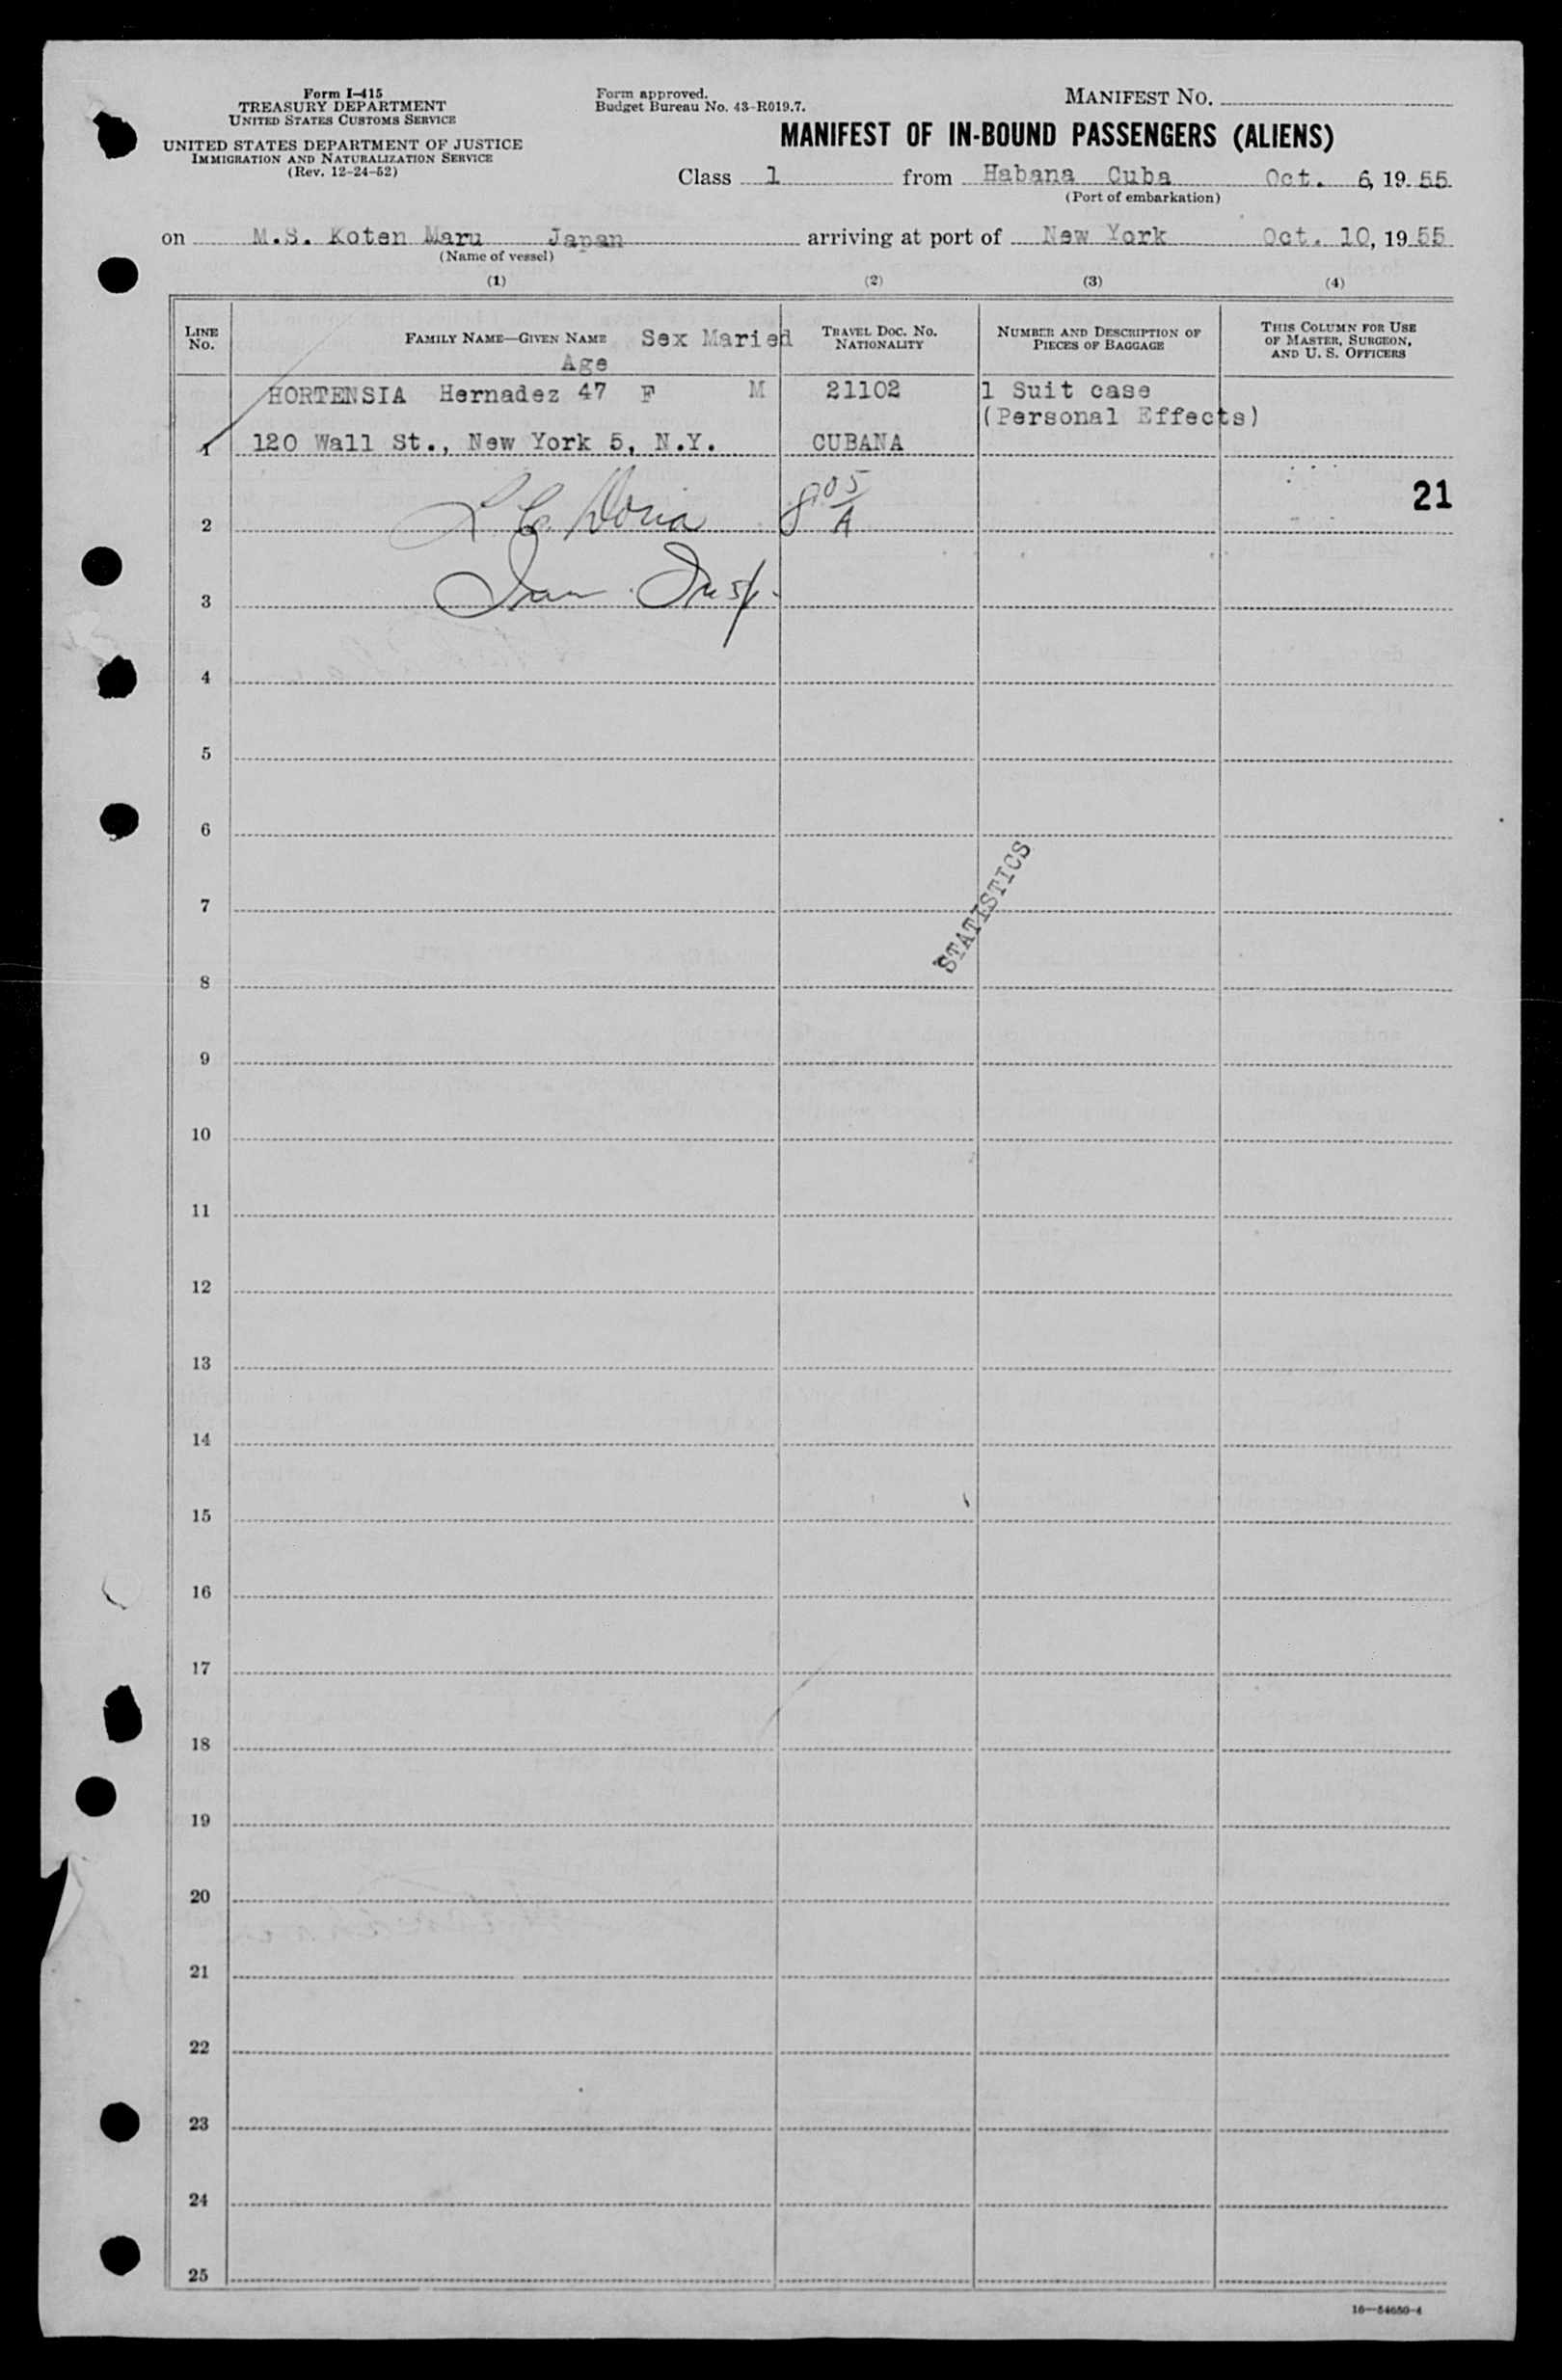 Form I-415
TREASURY DEPARTMENT
UNITED STATES CUSTOMS SERVICE
UNITED STATES DEPARTMENT OF JUSTICE
IMMIGRATION AND NATURALIZATION SERVICE
(Rev. 12-24-52)
Form approved.
Budget Bureau No. 43-R019.7.
MANIFEST NO.
MANIFEST OF IN-BOUND PASSENGERS (ALIENS)
Class 1 from Habana Cuba Oct. 6, 19 55
(Port of embarkation)
on M.S. Koten Maru Japan arriving at port of New York Oct. 10, 19 55
(Name of vessel)
(1) (2) (3) (4)
LINE NO.
FAMILY NAME—GIVEN NAME Sex Maried
Age
TRAVEL DOC. NO.
NATIONALITY
NUMBER AND DESCRIPTION OF
PIECES OF BAGGAGE
THIS COLUMN FOR USE
OF MASTER, SURGEON,
AND U. S. OFFICERS
HORTENSIA Hernadez 47 F M 21102 1 Suit case
(Personal Effects)
1 120 Wall St., New York 5, N.Y. CUBANA
21
2 Doria 8 05/A
3 Insp.
4
5
6
7
STATISTICS
8
9
10
11
12
13
14
15
16
17
18
19
20
21
22
23
24
25
16—54650-4